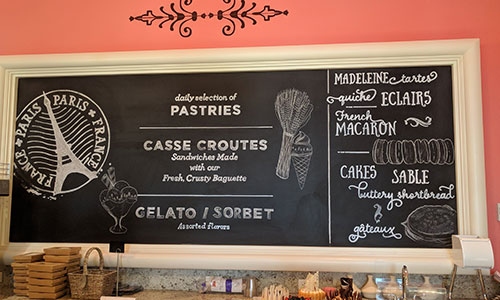 PARIS PARIS
FRANCE FRANCE
daily selection of
PASTRIES
CASSE CROUTES
Sandwiches Made
with our
Fresh, Crusty Baguette
GELATO / SORBET
Assorted flavors
MADELEINE tartes
quiche ECLAIRS
French
MACARON
CAKES SABLE
buttery shortbread
gâteaux